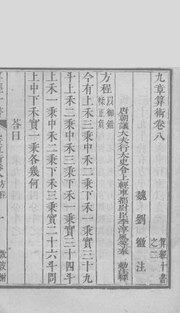 九章算術卷八
魏劉徽注
唐朝議大夫行太史令上輕車都尉臣李淳風等奉敕注釋
方程以御錯糅正負
今有上禾三秉中禾二秉下禾一秉實三十九
斗上禾二秉中禾三秉下禾一秉實三十四斗
上禾一秉中禾二秉下禾三秉實二十六斗問
上中下禾實一秉各幾何
答曰
算經十書